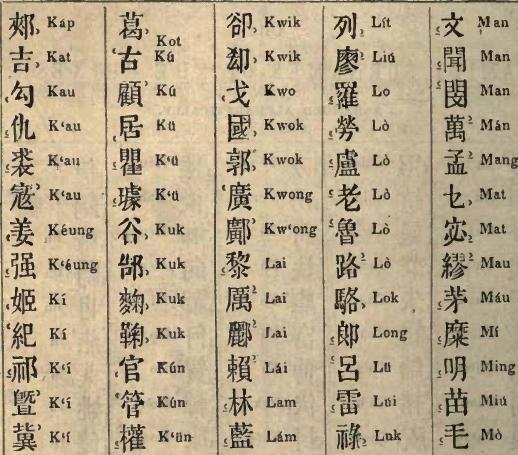 郟 Káp
吉 Kat
勾 Kau
仇 K‘au
裘 K‘au
寇 K‘au
姜 Kéung
强 K‘éung
姬 Kí
紀 Kí
祁 K‘í
曁 K‘í
冀 K‘í
葛 Kot
古 Kú
顧 Kú
居 Kü
瞿 K‘ü
璩 K‘ü
谷 Kuk
Kuk
麴 Kuk
鞠 Kuk
官 Kún
管 Kún
權 K‘ün
郤 Kwik
郄 Kwik
戈 Kwo
國 Kwok
郭 Kwok
廣 Kwong
鄺 Kw‘ong
黎 Lai
厲 Lai
酈 Lai
賴 Lái
林 Lam
藍 Lám
列 Lít
廖 Liú
羅 Lo
勞 Lò
盧 Lò
老 Lò
魯 Lò
路 Lò
駱 Lok
郎 Long
呂 Lü
雷 Lúi
祿 Luk
文 Man
聞 Man
閔 Man
萬 Mán
孟 Mang
乜 Mat
宓 Mat
繆 Mau
茅 Máu
糜 Mí
明 Ming
苗 Miú
毛 Mò